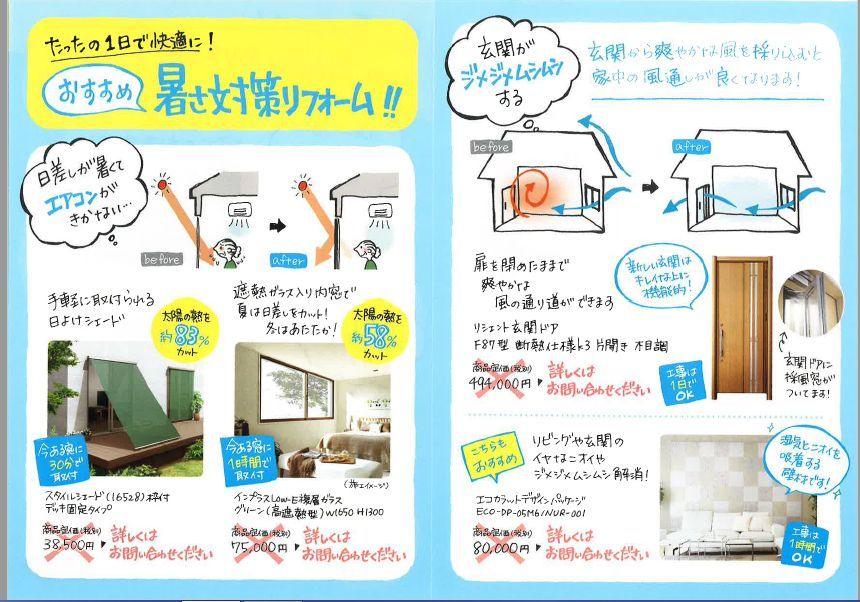 たったの1日で快適に!
おすすめ
暑さ対策リフォーム!!
日差しが暑くて
エアコンが
きかない…
before
after
手軽に取付られる
日よけシェード
太陽の熱を
約83%
カット
今ある窓に
30分で
取付
スタイルシェード(16528)枠付
デッキ固定タイプ
商品定価(税別)
38,500円
詳しくは
お問い合わせください
遮熱ガラス入り内窓で
夏は日差しをカット!
冬はあたたか!
太陽の熱を
約58%
カット
今ある窓に
1時間で
取付
(施工イメージ)
インプラスLow-E複層ガラス
グリーン(高遮熱型)W1650 H1300
商品定価(税別)
75,000円
詳しくは
お問い合わせください
玄関が
ジメジメムシムシ
する
玄関から爽やかな風を採り込むと
家中の風通しが良くなります!
before
after
扉を閉めたままで
爽やかな
風の通り道ができます
リシェント玄関ドア
F87型 断熱仕様k3 片開き 木目調
商品定価(税別)
494,000円
詳しくは
お問い合わせください
新しい玄関は
キレイな上に
機能的!
工事は
1日で
OK
玄関ドアに
採風窓が
ついてます!
こちらも
おすすめ
リビングや玄関の
イヤなニオイや
ジメジメムシムシ解消!
エコカラットデザインパッケージ
ECO-DP-05M6/NUR-001
商品定価(税別)
80,000円
詳しくは
お問い合わせください
湿気とニオイを
吸着する
壁材です!
工事は
1時間で
OK